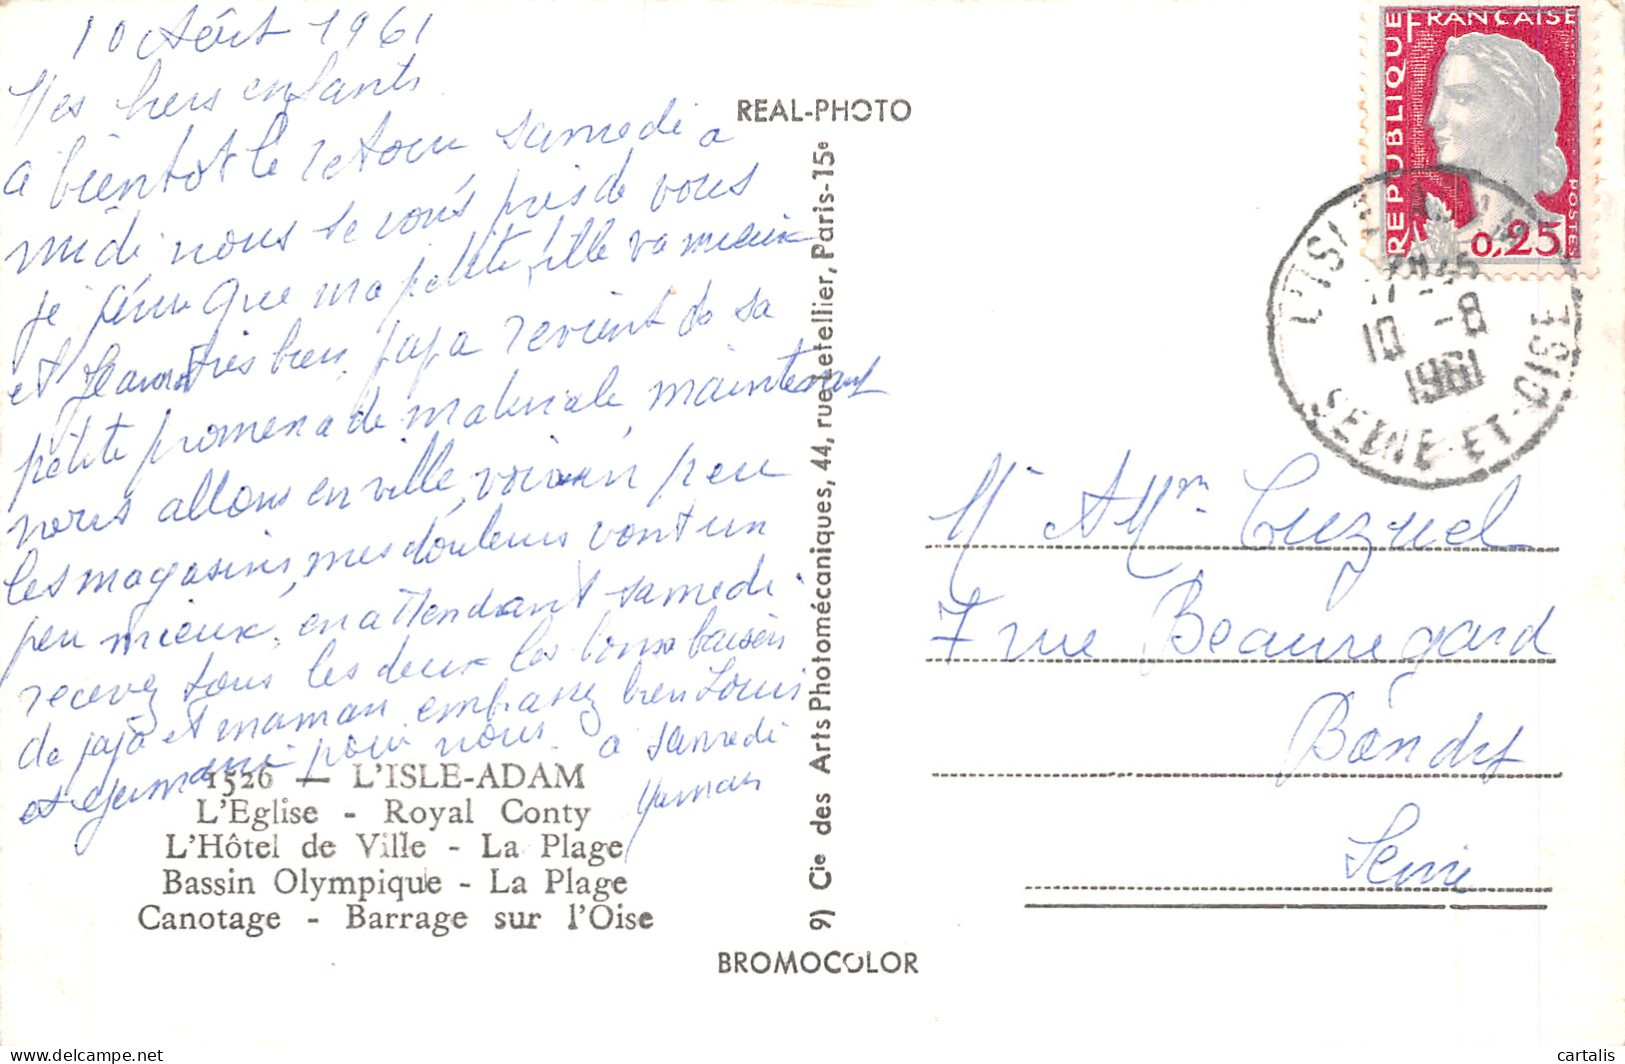 10 Août 1961
Mes hers enfants
a bientot le retour samedi a
midi nous se rons pres de vous
je pense que ma petite fille va mieux
et Jean tres bien, papa revient de sa
petite promenade matinale, maintenant
nous allons en ville, voir un peu
les magasins, mes douleurs vont un
peu mieux, en attendant samedi
recevez tous les deux les bons baisers
de papa et maman embrassez bien Louis
et Germaine pour nous a samedi
Maman
1526 — L'ISLE-ADAM
L'Eglise - Royal Conty
L'Hôtel de Ville - La Plage
Bassin Olympique - La Plage
Canotage - Barrage sur l'Oise
REAL-PHOTO
9) Cie des Arts Photomécaniques, 44, rue Letellier, Paris-15e
BROMOCOLOR
REPUBLIQUE FRANÇAISE
POSTES
0,25
L'ISLE-ADAM
10 -8
1961
SEINE-ET-OISE
Mr & Mme Cuzuel
7 rue Beauregard
Bondy
Seine
cartalis